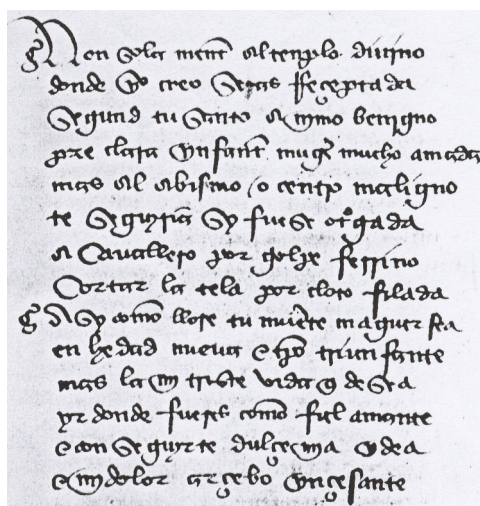 Non sola ment al templo diuino
donde yo creo seas rreçeptada
segund tu santo animo benigno
preclara ynfant muger mucho amada
mas al abismo / o centro maligno
te seguyria sy fuese otorgada
a Cauallero por golpe ferrino
Cortar la tela por cloto filada
Asy como llore tu muerte maguer sea
en hedad nueua e tpo triunfante
mas la my triste vida q desea
yr donde fueres como fiel amante
e conseguyrte dulçe mia ydea
e my dolor açerbo ynçesante